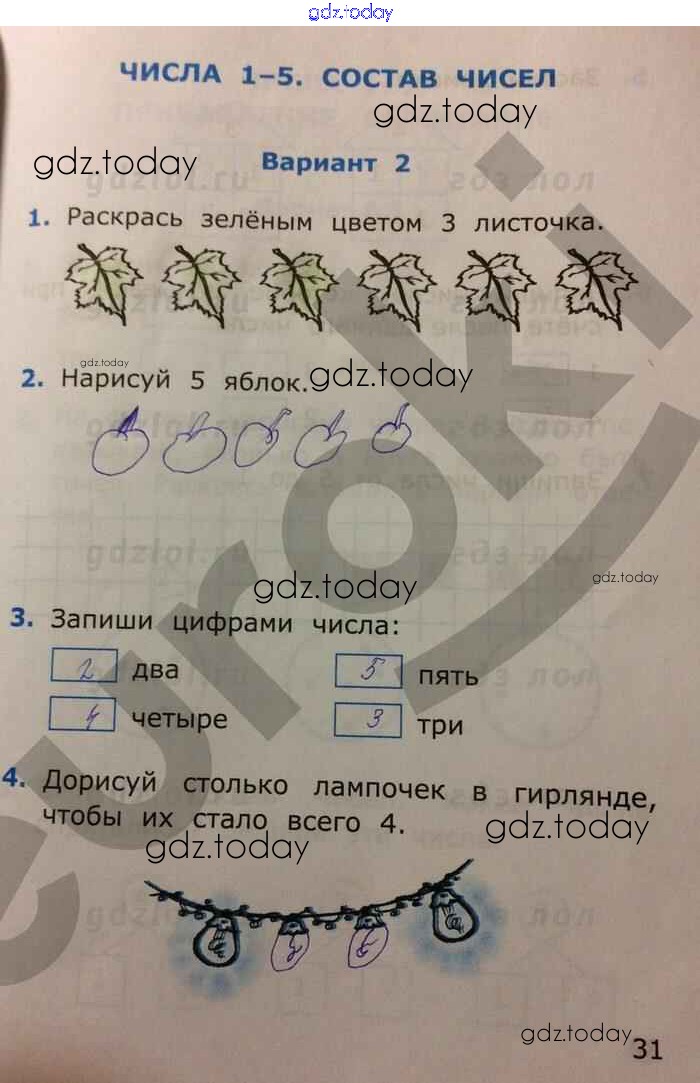 gdz.today
ЧИСЛА 1–5. СОСТАВ ЧИСЕЛ
gdz.today
gdz.today
Вариант 2
1. Раскрась зелёным цветом 3 листочка.
gdz.today
2. Нарисуй 5 яблок.
gdz.today
gdz.today
gdz.today
3. Запиши цифрами числа:
2 два 5 пять
4 четыре 3 три
4. Дорисуй столько лампочек в гирлянде,
чтобы их стало всего 4.
gdz.today
gdz.today
gdz.today
31
euroki